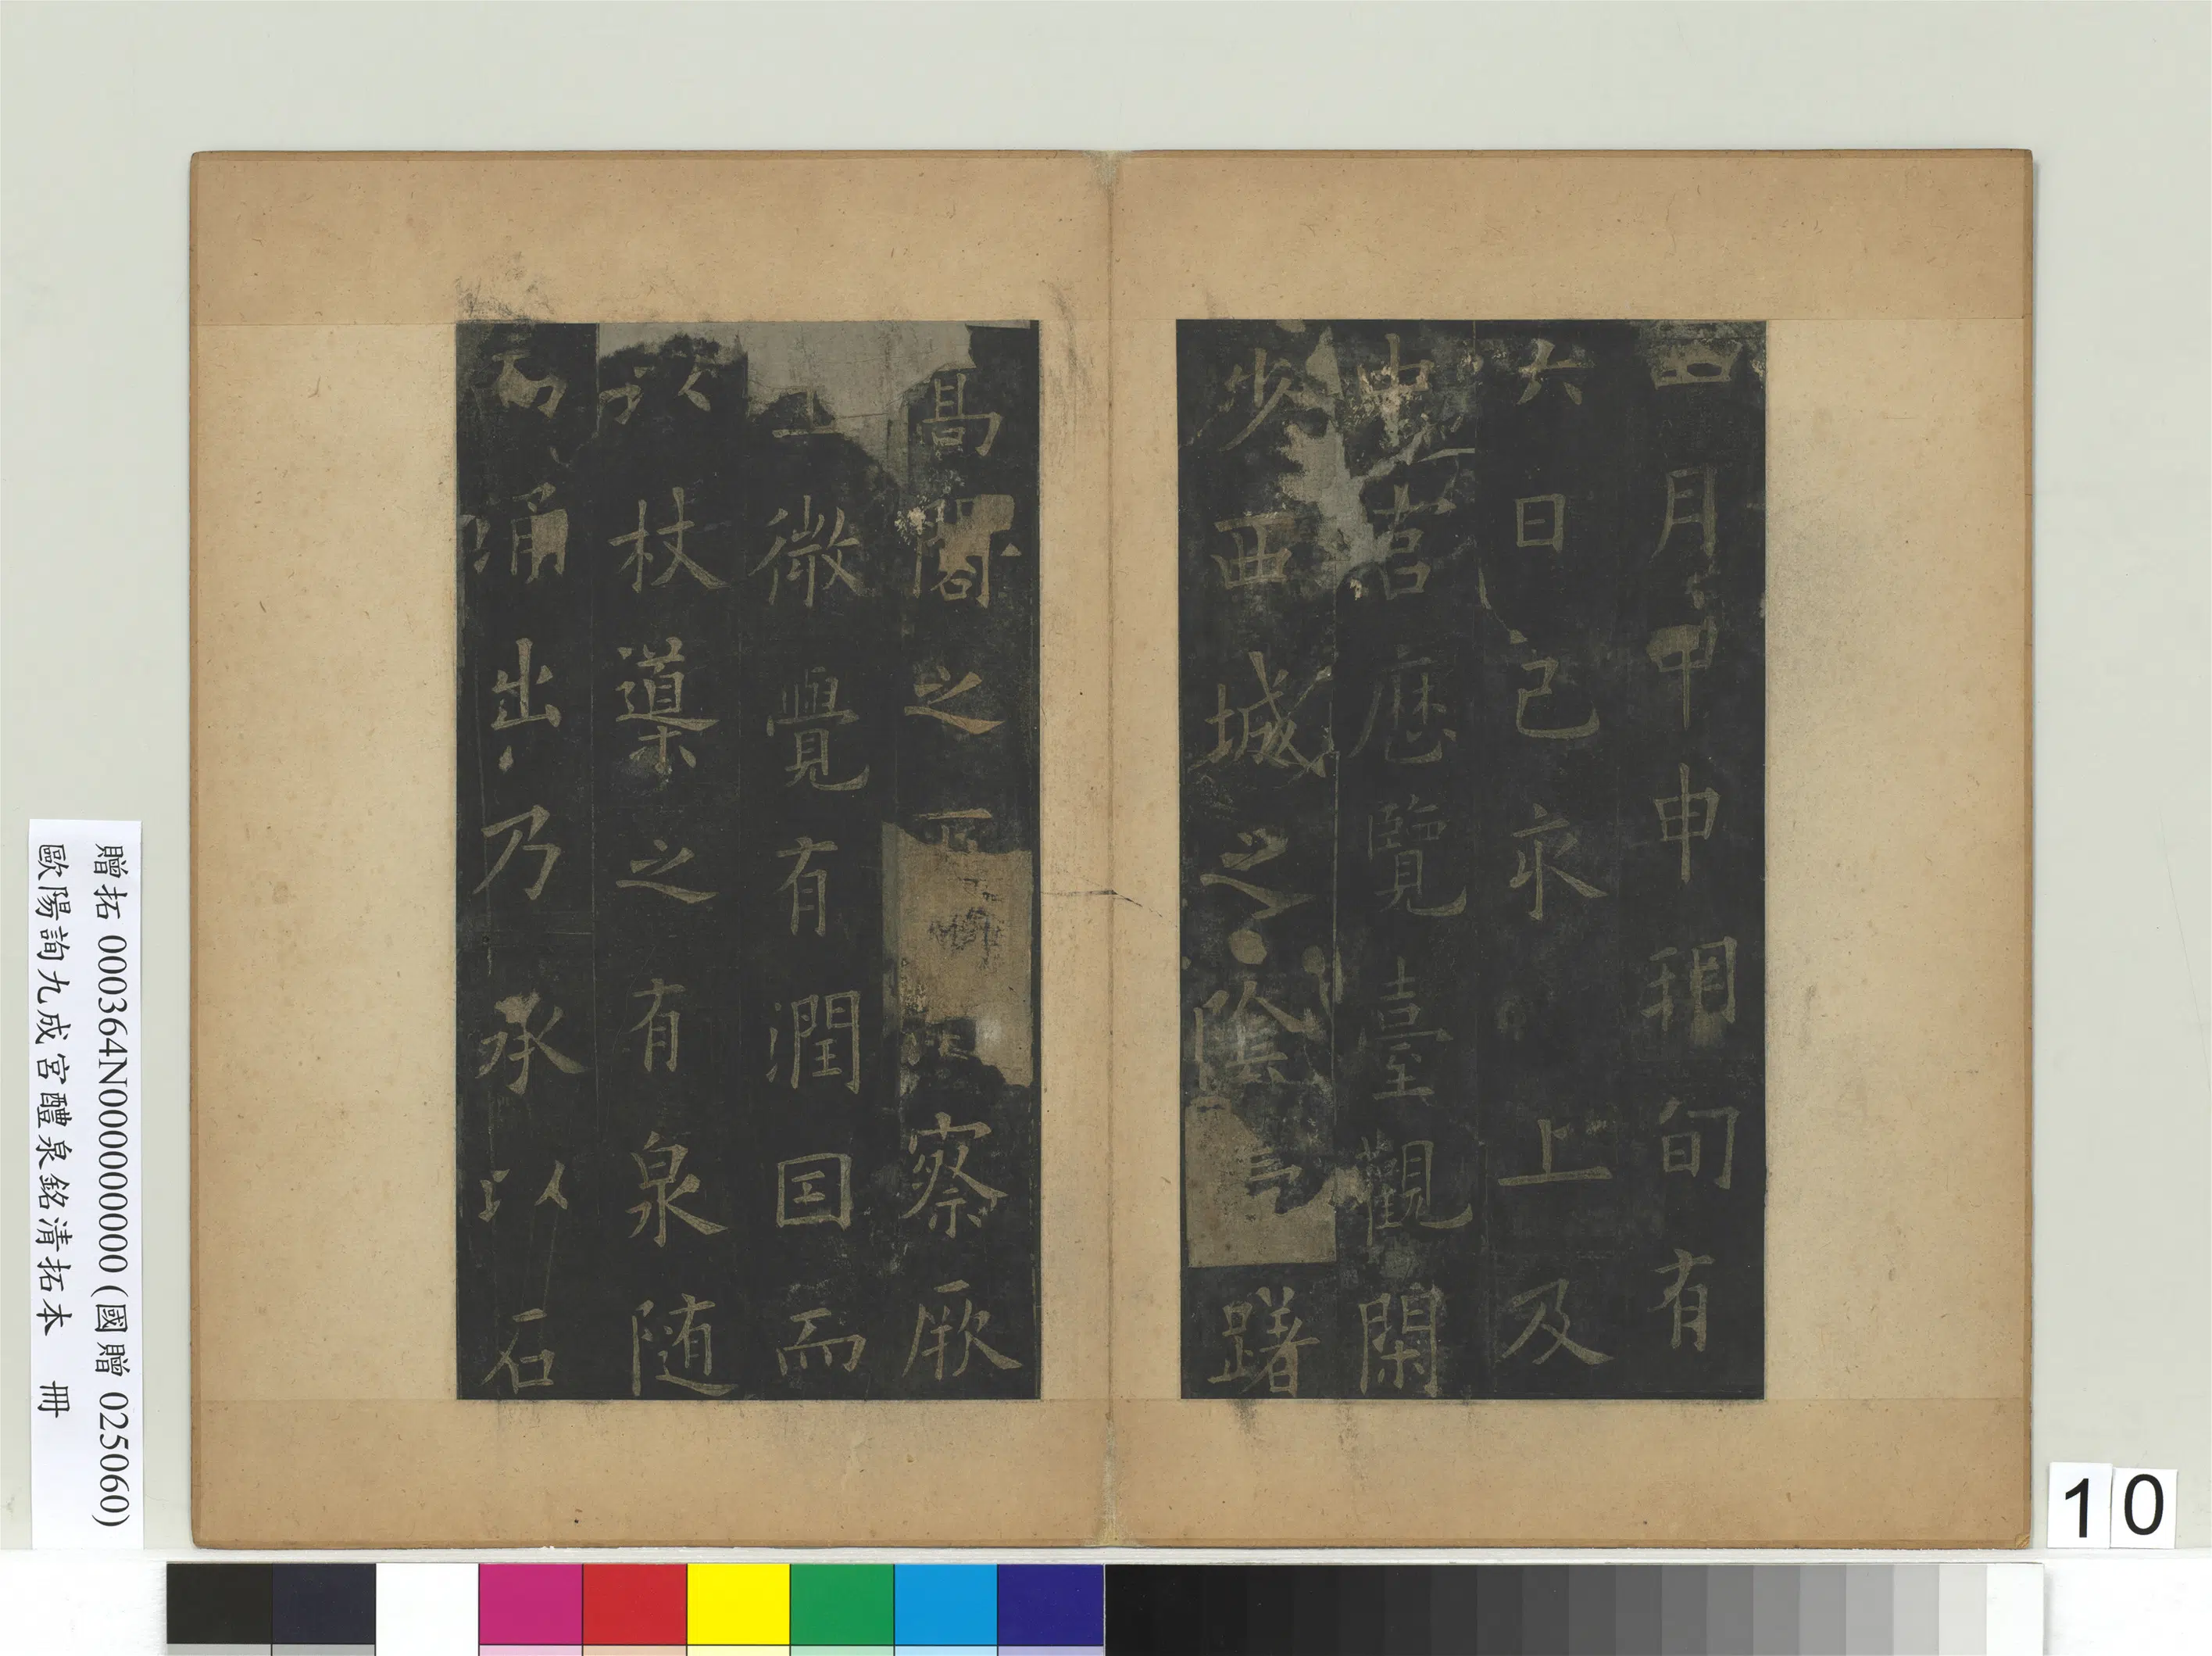 四月甲申朔旬有
六日己亥上及
中宮厯覽臺觀閑
步西城之陰躇
高閣之下察厥
土微覺有潤囙而
以杖導之有泉随
而涌出乃承以石
贈拓 000364N000000000 (國贈 025060)
歐陽詢九成宮醴泉銘清拓本 冊
10